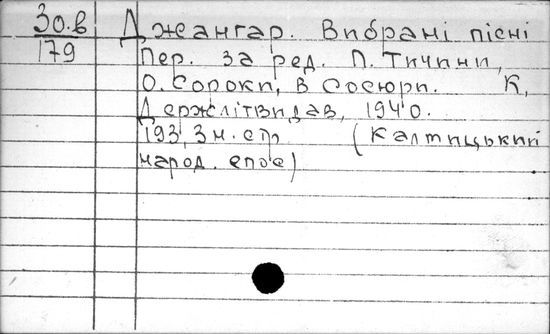 30.в
179
Джангар. Вибрані пісні
Пер. за ред. П. Тичини,
О. Сороки, В Сосюри. К,
Держлітвидав, 1940.
193, 3 н. стр (Калмицький
народ. епос)